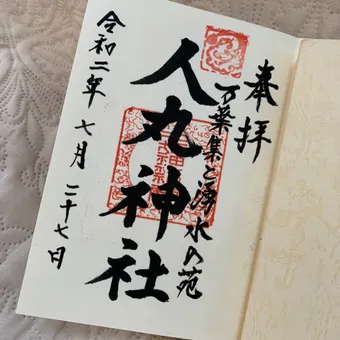 奉拝
万葉集と湧水の苑
人丸神社
令和二年七月二十七日